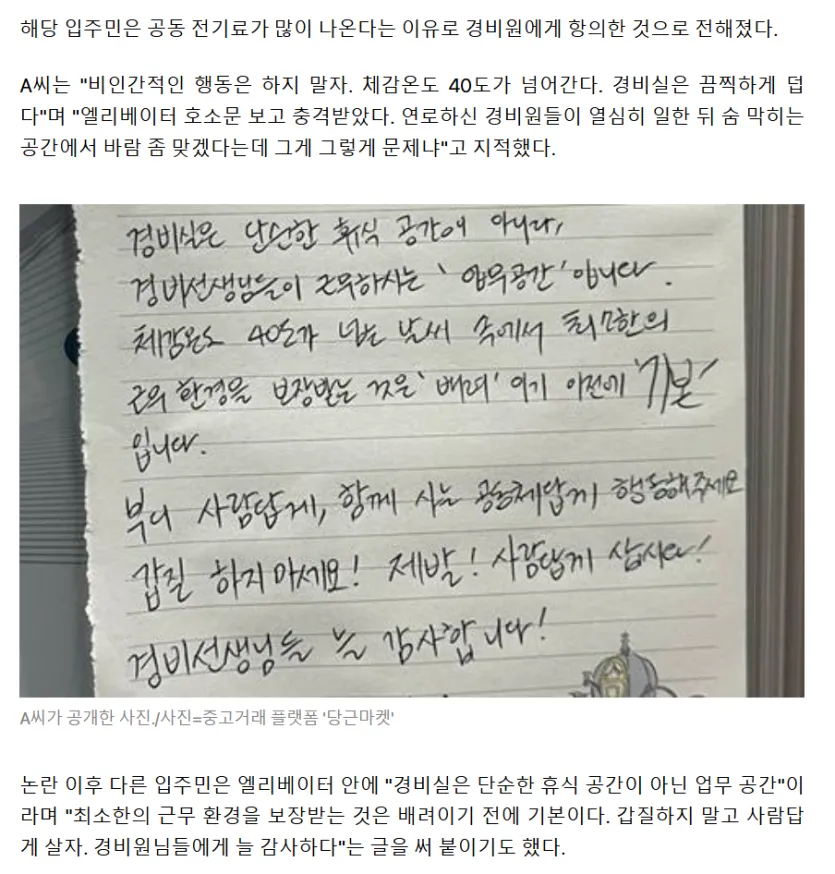 해당 입주민은 공동 전기료가 많이 나온다는 이유로 경비원에게 항의한 것으로 전해졌다.
A씨는 "비인간적인 행동은 하지 말자. 체감온도 40도가 넘어간다. 경비실은 끔찍하게 덥
다"며 "엘리베이터 호소문 보고 충격받았다. 연로하신 경비원들이 열심히 일한 뒤 숨 막히는
공간에서 바람 좀 맞겠다는데 그게 그렇게 문제냐"고 지적했다.
경비실은 단순한 휴식 공간이 아니라,
경비선생님들이 근무하시는 '업무공간'입니다.
체감온도 40도가 넘는 날씨 속에서 최소한의
근무 환경을 보장받는 것은 '배려'이기 이전에 '기본'
입니다.
부디 사람답게, 함께 사는 공동체답게 행동해주세요
갑질 하지마세요! 제발! 사람답게 삽시다!
경비선생님들 늘 감사합니다!
A씨가 공개한 사진./사진=중고거래 플랫폼 '당근마켓'
논란 이후 다른 입주민은 엘리베이터 안에 "경비실은 단순한 휴식 공간이 아닌 업무 공간"이
라며 "최소한의 근무 환경을 보장받는 것은 배려이기 전에 기본이다. 갑질하지 말고 사람답
게 살자. 경비원님들에게 늘 감사하다"는 글을 써 붙이기도 했다.